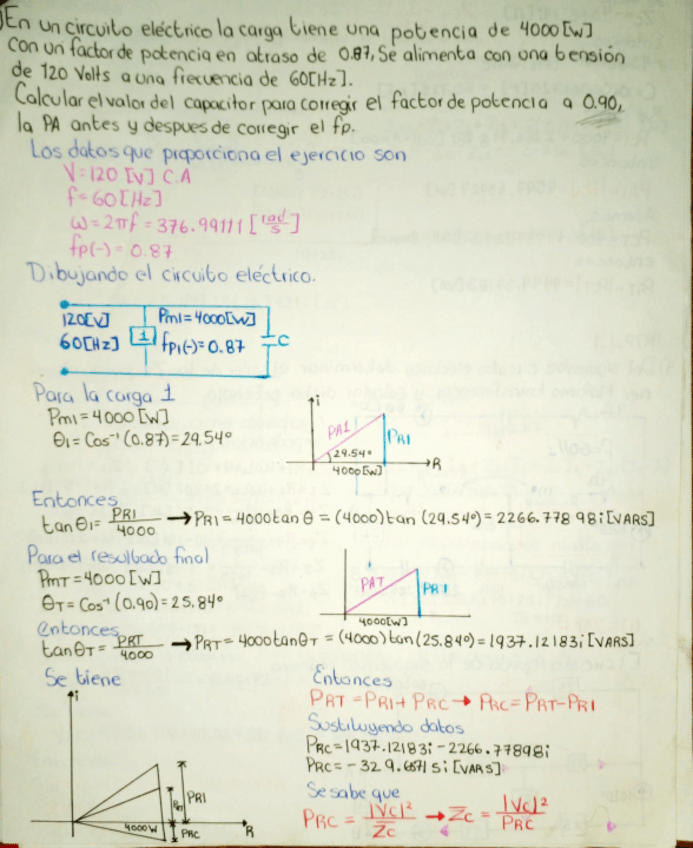 En un circuito eléctrico la carga tiene una potencia de 4000 [W]
con un factor de potencia en atraso de 0.87, Se alimenta con una tensión
de 120 Volts a una frecuencia de 60[Hz].
Calcular el valor del capacitor para corregir el factor de potencia a 0.90,
la PA antes y despues de corregir el fp.
Los datos que proporciona el ejercicio son
V=120 [V] C.A
f=60[Hz]
ω=2πf=376.99111 [rad/s]
fp(-)=0.87
Dibujando el circuito eléctrico.
120[V] Pm1=4000[W]
60[Hz] 1 fp1(-)=0.87 C
Para la carga 1
Pm1=4000[W]
θ1=Cos⁻¹(0.87)=29.54°
i
PA1 PR1
29.54°
4000[W] R
Entonces
tanθ1=PR1/4000 → PR1=4000tanθ=(4000)tan(29.54°)=2266.77898i[VARS]
Para el resultado final
PmT=4000[W]
θT=Cos⁻¹(0.90)=25.84°
PAT PR1
4000[W]
entonces
tanθT=PRT/4000 → PRT=4000tanθT=(4000)tan(25.84°)=1937.12183i[VARS]
Se tiene
i
PR1
4000W PRC R
Entonces
PRT=PR1+PRC → PRC=PRT-PR1
Sustituyendo datos
PRC=1937.12183i-2266.77898i
PRC=-329.65715i[VARS]
Se sabe que
PRC=|Vc|²/Zc → Zc=|Vc|²/PRC